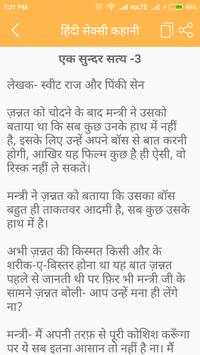 7:01 PM
VoLTE
हिंदी सेक्सी कहानी
एक सुन्दर सत्य -3
लेखक- स्वीट राज और पिंकी सेन
ज़न्नत को चोदने के बाद मन्त्री ने उसको
बताया था कि सब कुछ उनके हाथ में नहीं
है, इसके लिए उन्हें अपने बॉस से बात करनी
होगी, आखिर यह फिल्म कुछ है ही ऐसी, वो
रिस्क नहीं ले सकते।
मन्त्री ने ज़न्नत को बताया कि उसका बॉस
बहुत ही ताकतवर आदमी है, सब कुछ उसके
हाथ में है।
अभी ज़न्नत की किस्मत किसी और के
शरीक-ए-बिस्तर होना था यह बात ज़न्नत
पहले से जानती थी पर फ़िर भी मन्त्री जी के
सामने ज़न्नत बोली- आप उन्हें मना ही लेंगे
ना?
मन्त्री- मैं अपनी तरफ़ से पूरी कोशिश करूँगा
पर ये सब इतना आसान तो नहीं है ना। मैं